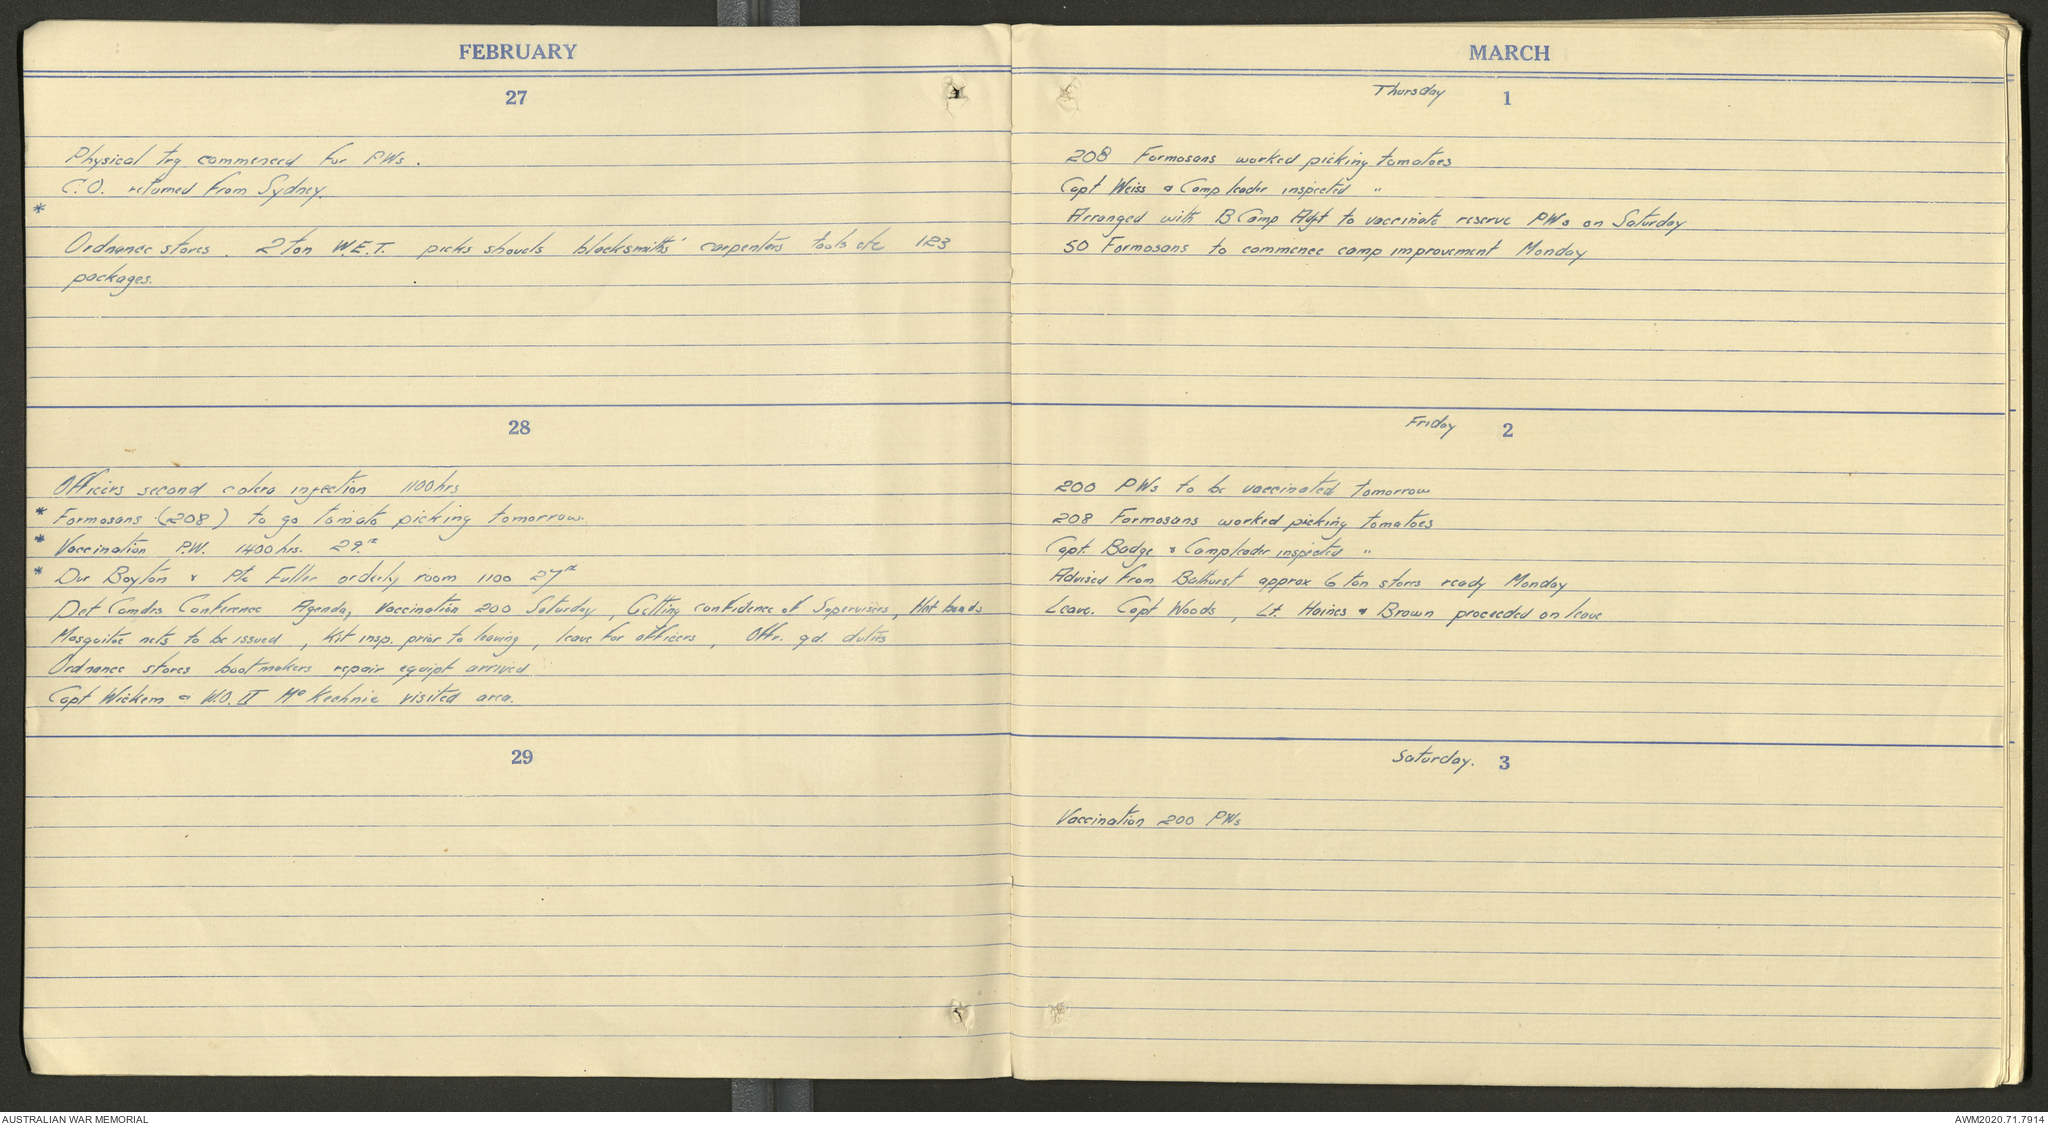 FEBRUARY
27
Physical trg commenced for PWs.
C.O. returned from Sydney.
*
Ordnance stores. 2 ton W.E.T. picks shovels blacksmiths' carpenters tools etc 123
packages.
28
Officers second colera injection 1100 hrs
* Formosans (208) to go tomato picking tomorrow.
* Vaccination P.W. 1400 hrs. 29th
* Dvr Boyton & Pte Fuller orderly room 1100 27th
Det Comdrs Conference Agenda, Vaccination 200 Saturday, Getting confidence of Supervisers, Hat bands
Mosquitoe nets to be issued, Kit insp. prior to leaving, leave for officers, Offr. gd. duties
Ordnance stores bootmakers repair equipt arrived
Capt Wickem & W.O. II McKechnie visited area.
29
MARCH
Thursday 1
208 Formosans worked picking tomatoes
Capt Weiss & Camp leader inspected "
Arranged with B Camp Adjt to vaccinate reserve PWs on Saturday
50 Formosans to commence camp improvement Monday
Friday 2
200 PWs to be vaccinated tomorrow
208 Formosans worked picking tomatoes
Capt. Badge & Camp leader inspected "
Advised from Bathurst approx 6 ton stores ready Monday
Leave. Capt Woods, Lt. Haines & Brown proceeded on leave
Saturday. 3
Vaccination 200 PWs
AUSTRALIAN WAR MEMORIAL
AWM2020.71.7914